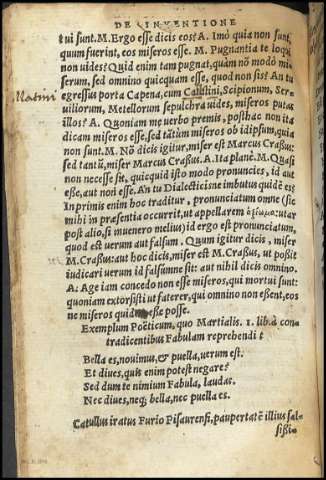 DE INVENTIONE
tui sunt. M. Ergo esse dicis eos? A. Imò quia non sunt,
quum fuerint, eos miseros esse. M. Pugnantia te loqui
non uides? Quid enim tam pugnat, quàm nō modò mi
serum, sed omnino quicquam esse, quod non sis? An tu
Natini
egressus porta Capena, cum Calistini, Scipionum, Ser
uiliorum, Metellorum sepulchra uides, miseros putas
illos? A. Quoniam me uerbo premis, posthac non ita
dicam miseros esse, sed tātùm miseros ob idipsum, quia
non sunt. M. Nō dicis igitur, miser est Marcus Craßus:
sed tantū, miser Marcus Craßus. A. Ita planè. M. Quasi
non necesse sit, quicquid isto modo pronuncies, id aut
eße, aut non eße. An tu Dialecticis ne imbutus quidē es?
In primis enim hoc traditur, pronunciatum omne (sic
mihi in præsentia occurrit, ut appellarem ἀξίωμα: utar
post alio, si inuenero melius) id ergo est pronunciatum,
quod est uerum aut falsum. Quum igitur dicis, miser
M. Craßus: aut hoc dicis, miser est M. Craßus, ut poßit
iudicari uerum id falsumne sit: aut nihil dicis omnino.
A. Age iam concedo non esse miseros, qui mortui sunt:
quoniam extorsisti ut faterer, qui omnino non eßent, eos
ne miseros quidem eße posse.
Exemplum Poëticum, quo Martialis. 1. lib. à con
tradicentibus Fabulam reprehendit
Bella es, nouimus, & puella, uerum est.
Et diues, quis enim potest negare?
Sed dum te nimium Fabula, laudas,
Nec diues, neq; bella, nec puella es.
Catullus iratus Furio Pisaurensi, paupertatē illius sal-
sißi-